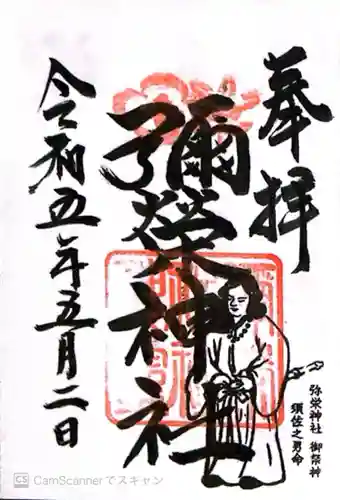 奉拝
彌榮神社
令和五年五月二日
弥栄神社 御祭神
須佐之男命
CS CamScannerでスキャン